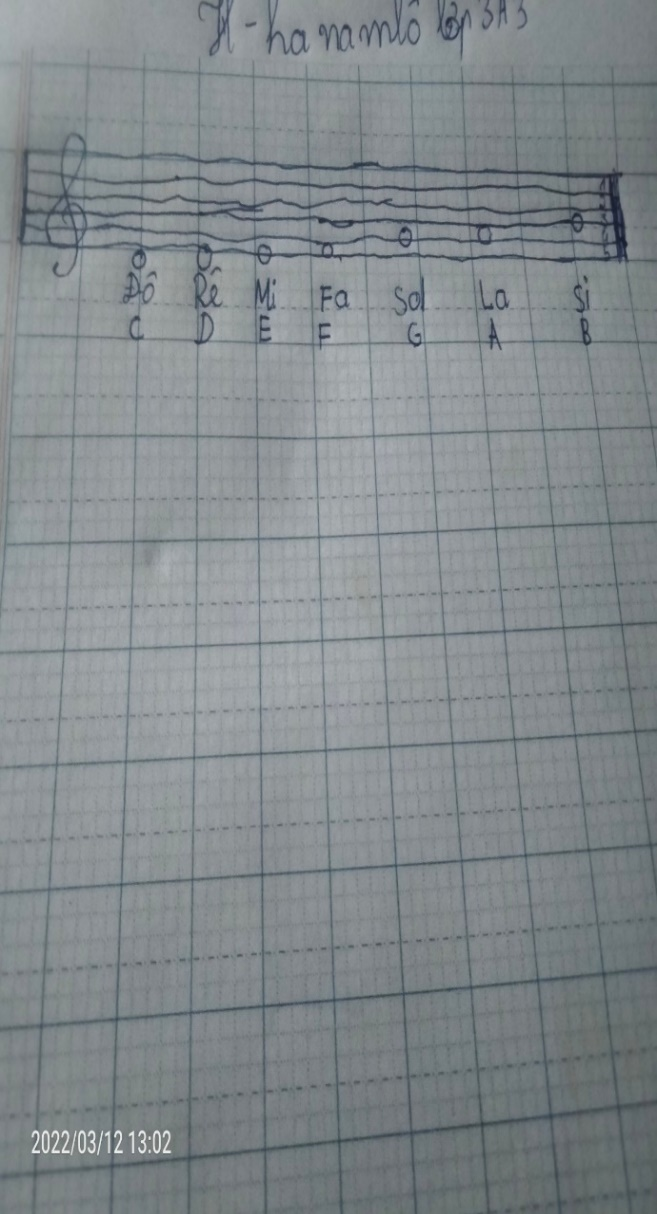 H-ha namlô lớp 3A3
Đô Rê Mi Fa Sol La Si
C D E F G A B
2022/03/12 13:02